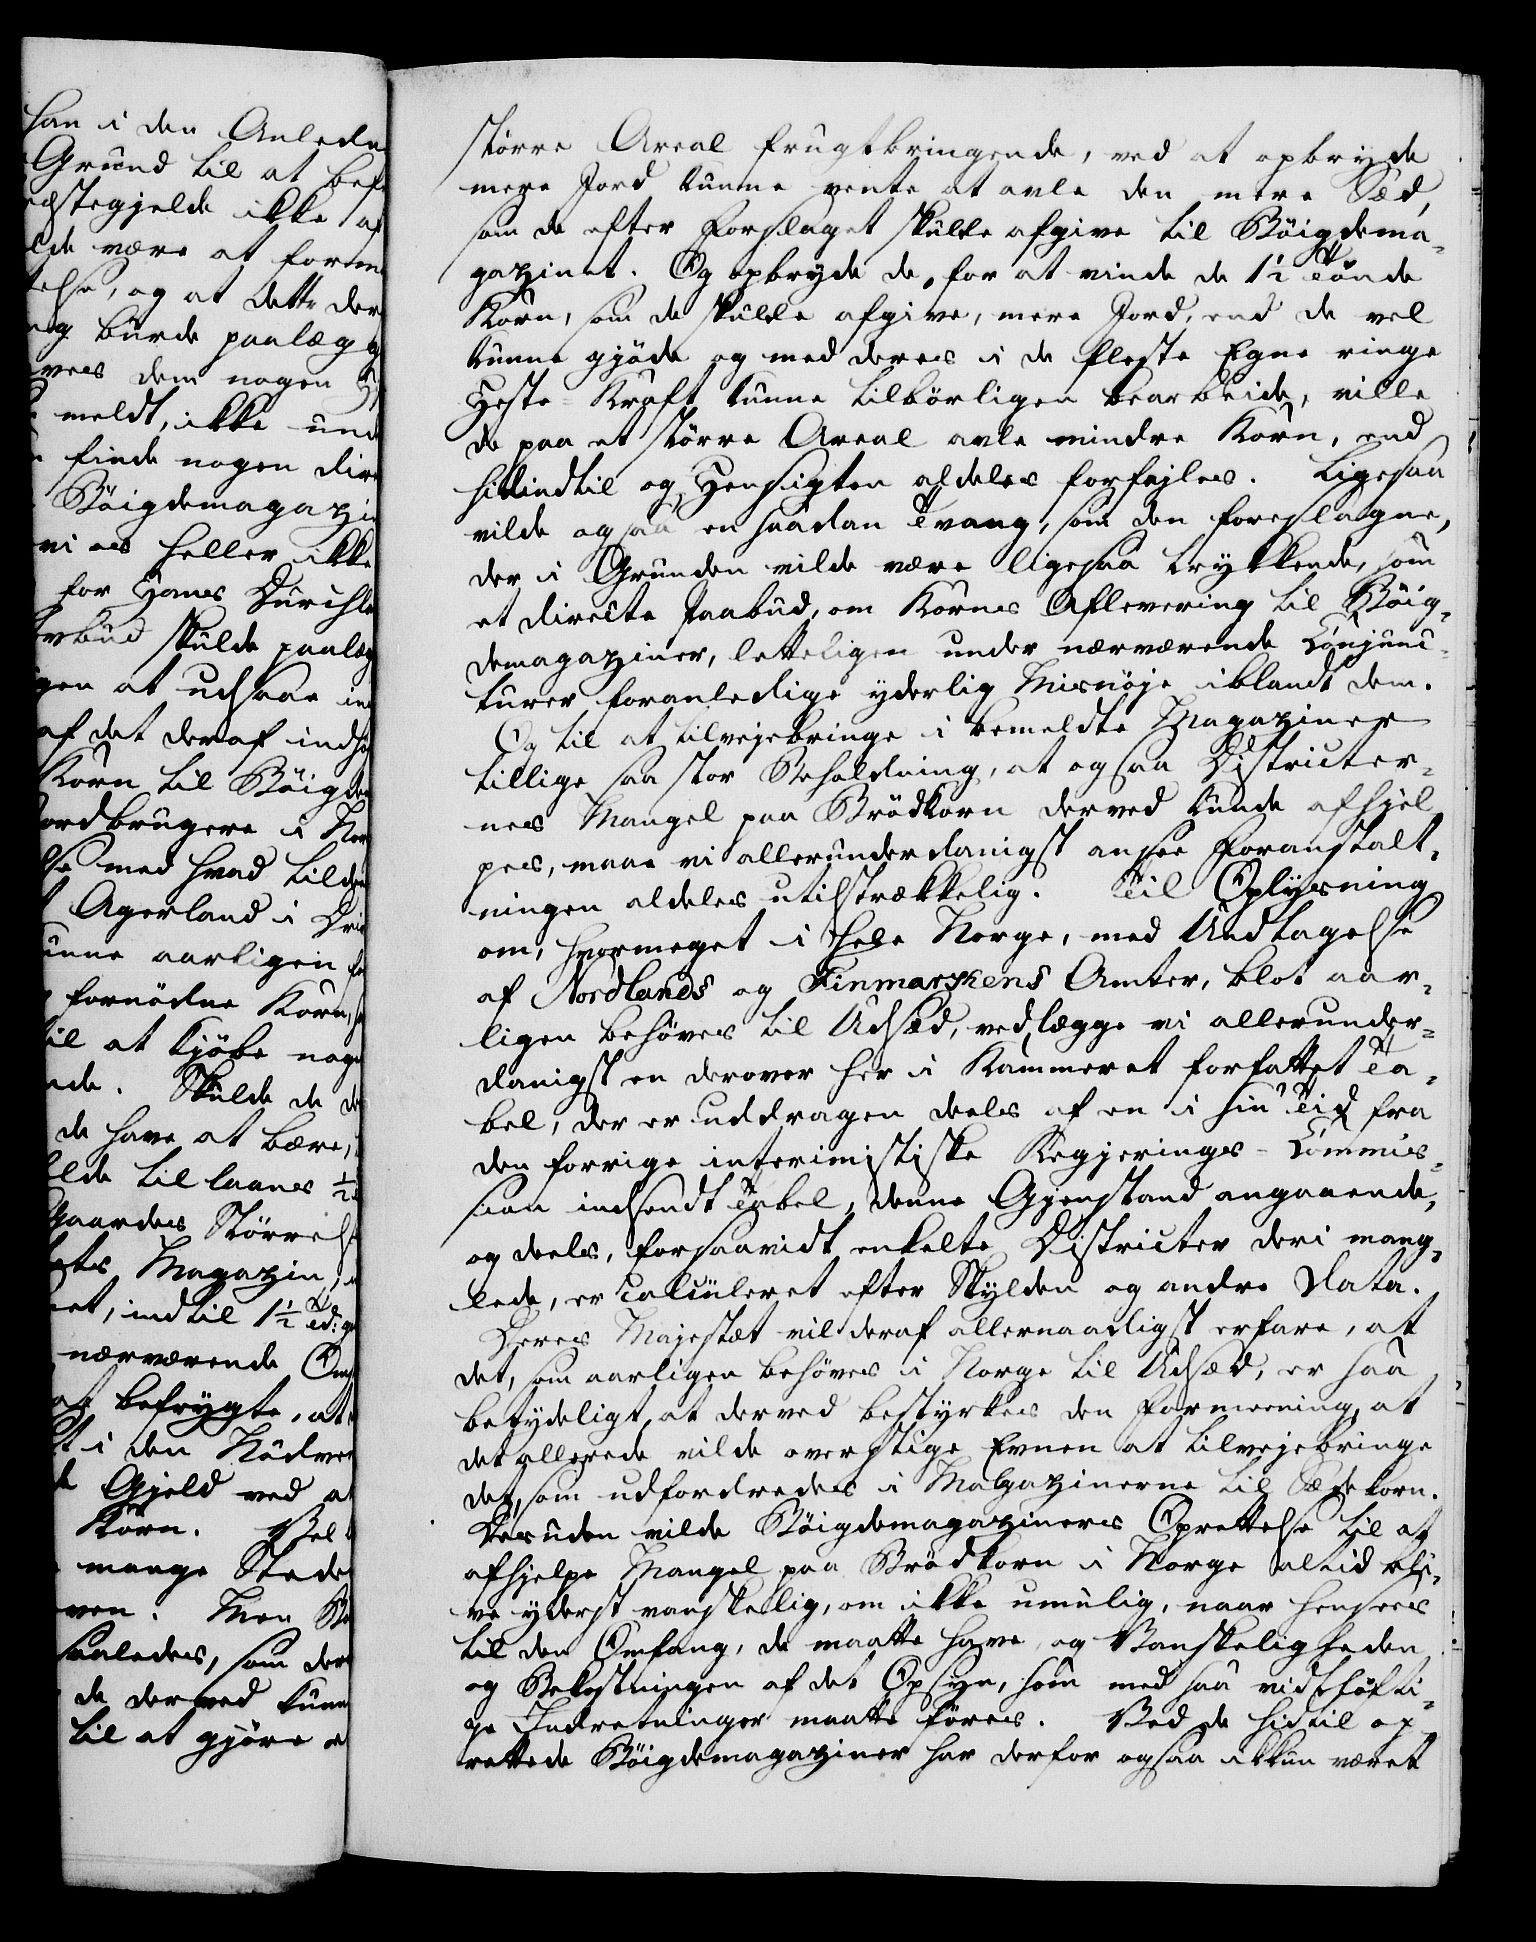 han i den Anledn
Grund til at bef
østegjelde ikke af
lde være at forme
else, og at dette der
og burde paalægg
vers dem nogen
meldt, ikke und
finde nogen dire
Böigdemagazin
vi os heller ikke
for Hans Durchl
vbud skulde paalæg
gen at udsaae in
af det deraf indhø
Korn til Böigde
ordbrugere i Nor
se med hvad tild
Agerland i Dri
unne aarligen
fornödne Korn,
til at kjöbe noge
nde. Skulde de
de have at bære,
lde til laans ½
Gaardens Störrelse
ets Magazin,
et, indtil 1½ Td:
nærværende Om
at befrygte, at
t i den Nödven
Gjeld ved at
Korn. Vel
mange Steder
ven. Men
saaledes, som der
de derved kunn
til at gjöre
större Areal frugtbringende, ved at opbryde
mere Jord kunne vente at avle den mere Sæd,
som de efter Forslaget skulde afgive til Böigdema-
gazinet. Og opbryde de, for at vinde de 1½ Tönde
Korn, som de skulde afgive, mere Jord, end de vel
kunne gjöde og med deres i de fleste Egne ringe
Heste-Kraft kunne tilbörligen bearbeide, ville
de paa et större Areal avle mindre Korn, end
hidindtil og Hensigten aldeles forfejles. Ligesaa
vilde ogsaa en saadan Tvang, som den foreslagne,
der i Grunden vilde være ligesaa trykkende, som
et directe Paabud, om Korns Aflevering til Böig-
demagaziner, letteligen under nærværende Conjunc-
turer foranledige yderlig Misnöje iblandt dem.
Og til at tilvejebringe i bemeldte Magaziner
tillige saa stor Beholdning, at ogsaa Districter-
nes Mangel paa Brödkorn derved kunde afhjel-
pes, maae vi allerunderdanigst ansee Foranstalt-
ningen aldeles utilstrækkelig. Til Oplysning
om, hvormeget i hele Norge, med Undtagelse
af Nordlands og Finmarkens Amter, blot aar-
ligen behöves til Udsæd, vedlægge vi allerunder-
danigst en derover her i Kammeret forfattet Ta-
bel, der er uddragen deels af en i sin Tid fra
den forrige interimistiske Regjerings-Commis-
sion indsendt Tabel, denne Gjenstand angaaende,
og deels, forsaavidt enkelte Districter deri mang-
lede, er calculeret efter Skylden og andre Data.
Deres Majestæt vil deraf allernaadigst erfare, at
det, som aarligen behöves i Norge til Udsæd, er saa
betydeligt, at derved bestyrkes den Formeening, at
det allerede vilde overstige Evnen at tilvejebringe
det, som udfordredes i Magazinerne til Sædekorn.
Desuden vilde Böigdemagaziners Oprettelse til at
afhjelpe Mangel paa Brödkorn i Norge altid bli-
ve yderst vanskelig, om ikke umulig, naar henseees
til den Omfang, de maatte have, og Vanskeligheden
og Bekostningen af det Opsyn, som med saa vidtløfti-
ge Indretninger maatte föres. Ved de hidtil op-
rettede Böigdemagaziner har derfor ogsaa ikkun været